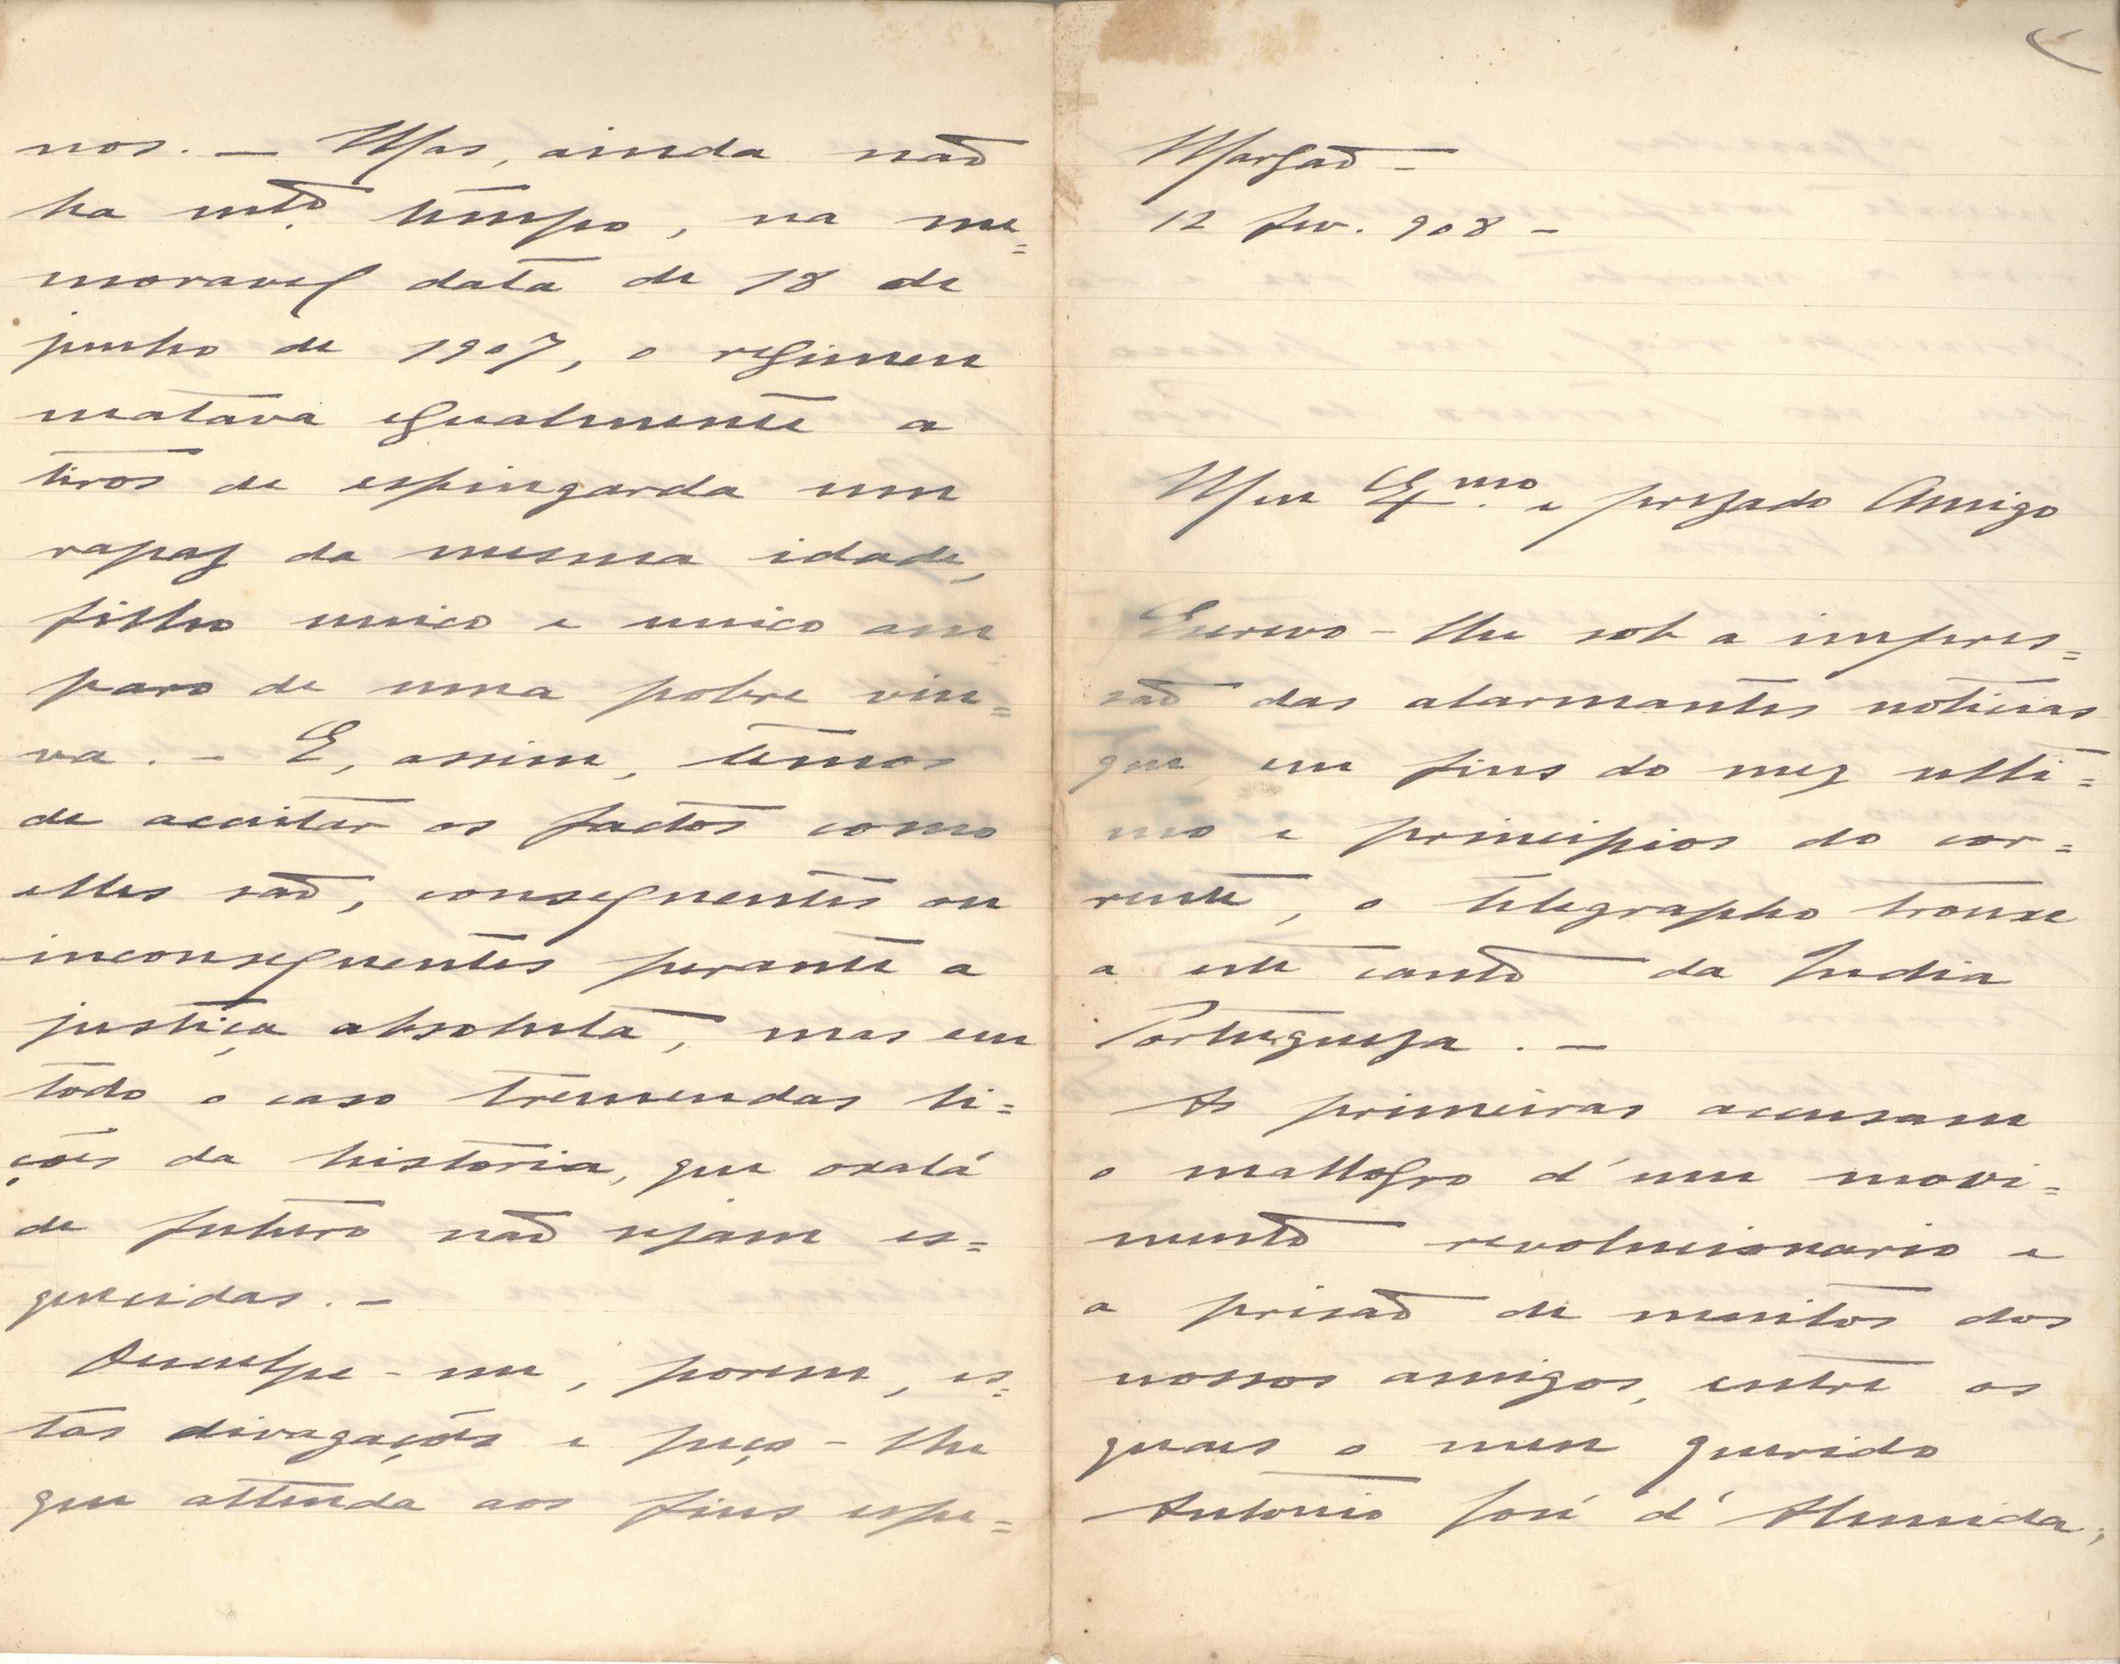 nos. — Mas, ainda não
ha mto. tempo, na me=
moravel data de 18 de
junho de 1907, o regimen
matava egualmente a
tiros de espingarda um
rapaz da mesma idade,
filho unico e unico am=
paro de uma pobre viu=
va. — E, assim, temos
de acceitar os factos como
elles são, consequentes ou
inconsequentes perante a
justiça absoluta, mas em
todo o caso tremendas li=
ções da historia, que oxalá
de futuro não sejam es=
quecidas. —
Desculpe-me, porem, es=
tas divagações e peço-lhe
que attenda aos fins espe=
Margão —
12 fev. 908 —
Meu Exmo. e prezado Amigo
Escrevo-lhe sob a impres=
são das alarmantes noticias
que em fins do mez ulti=
mo e principios do cor=
rente, o telegrapho trouxe
a este canto da India
Portugueza. —
As primeiras accusam
o mallogro d'um movi=
mento revolucionario e
a prisão de muitos dos
nossos amigos, entre os
quaes o meu querido
Antonio José d'Almeida,